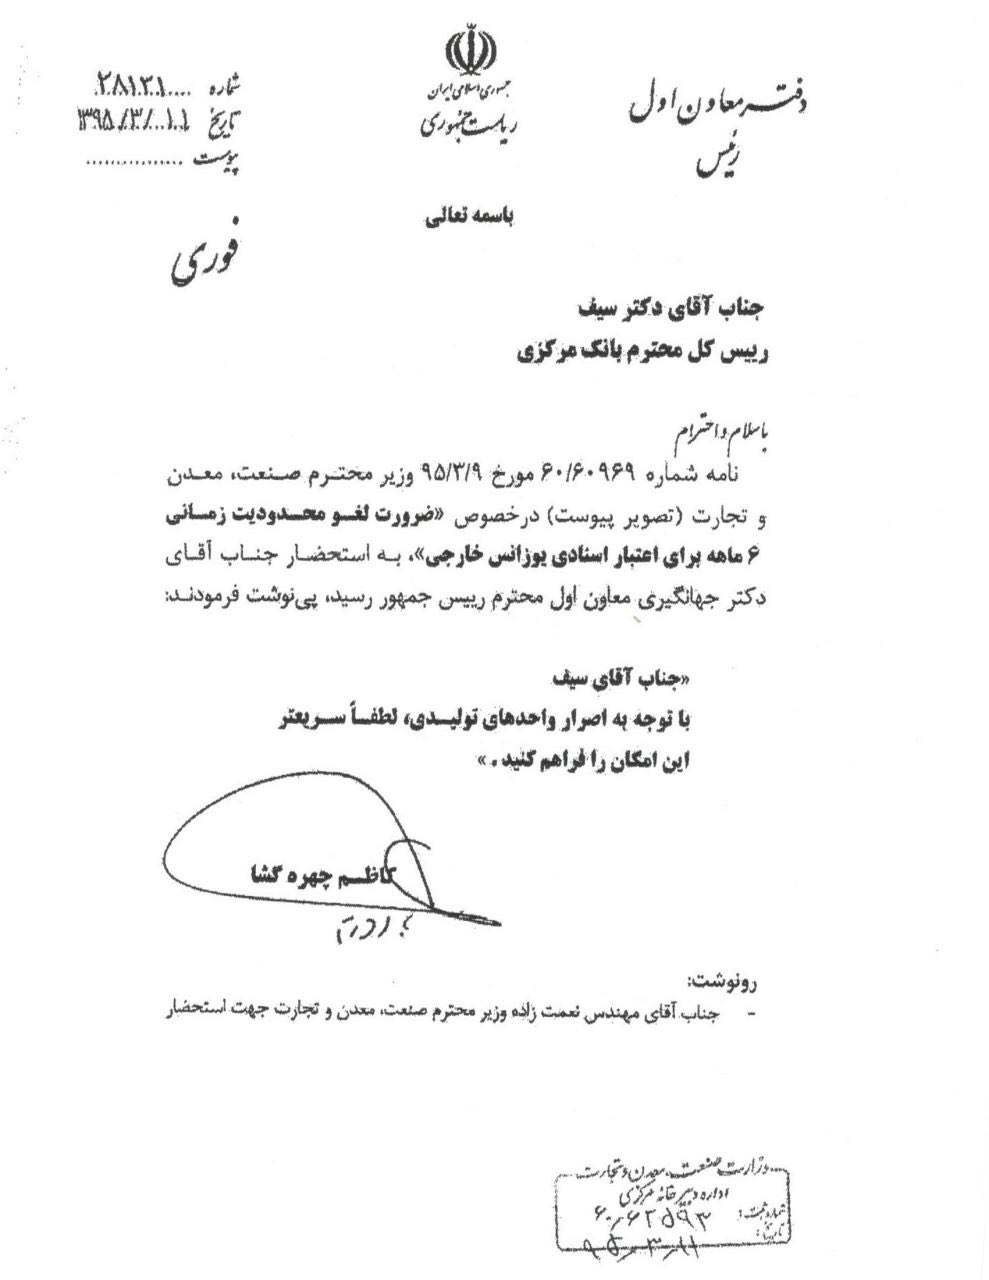 جمهوری اسلامی ایران
ریاست جمهوری
دفتر معاون اول
رئیس
شماره ۲۸۱۳۱
تاریخ ۱۳۹۵/۳/۱۱
پیوست ................
باسمه تعالی
فوری
جناب آقای دکتر سیف
رییس کل محترم بانک مرکزی
باسلام و احترام
نامه شماره ۶۰/۶۰۹۶۹ مورخ ۹۵/۳/۹ وزیر محترم صنعت، معدن
و تجارت (تصویر پیوست) درخصوص «ضرورت لغو محدودیت زمانی
۶ ماهه برای اعتبار اسنادی یوزانس خارجی»، به استحضار جناب آقای
دکتر جهانگیری معاون اول محترم رییس جمهور رسید، پی‌نوشت فرمودند:
«جناب آقای سیف
با توجه به اصرار واحدهای تولیدی، لطفاً سریعتر
این امکان را فراهم کنید.»
کاظم چهره گشا
رونوشت:
- جناب آقای مهندس نعمت زاده وزیر محترم صنعت، معدن و تجارت جهت استحضار
وزارت صنعت، معدن و تجارت
اداره دبیرخانه مرکزی
شماره ثبت: ۶۰/۶۲۵۹۳
تاریخ: ۹۵/۳/۱۱